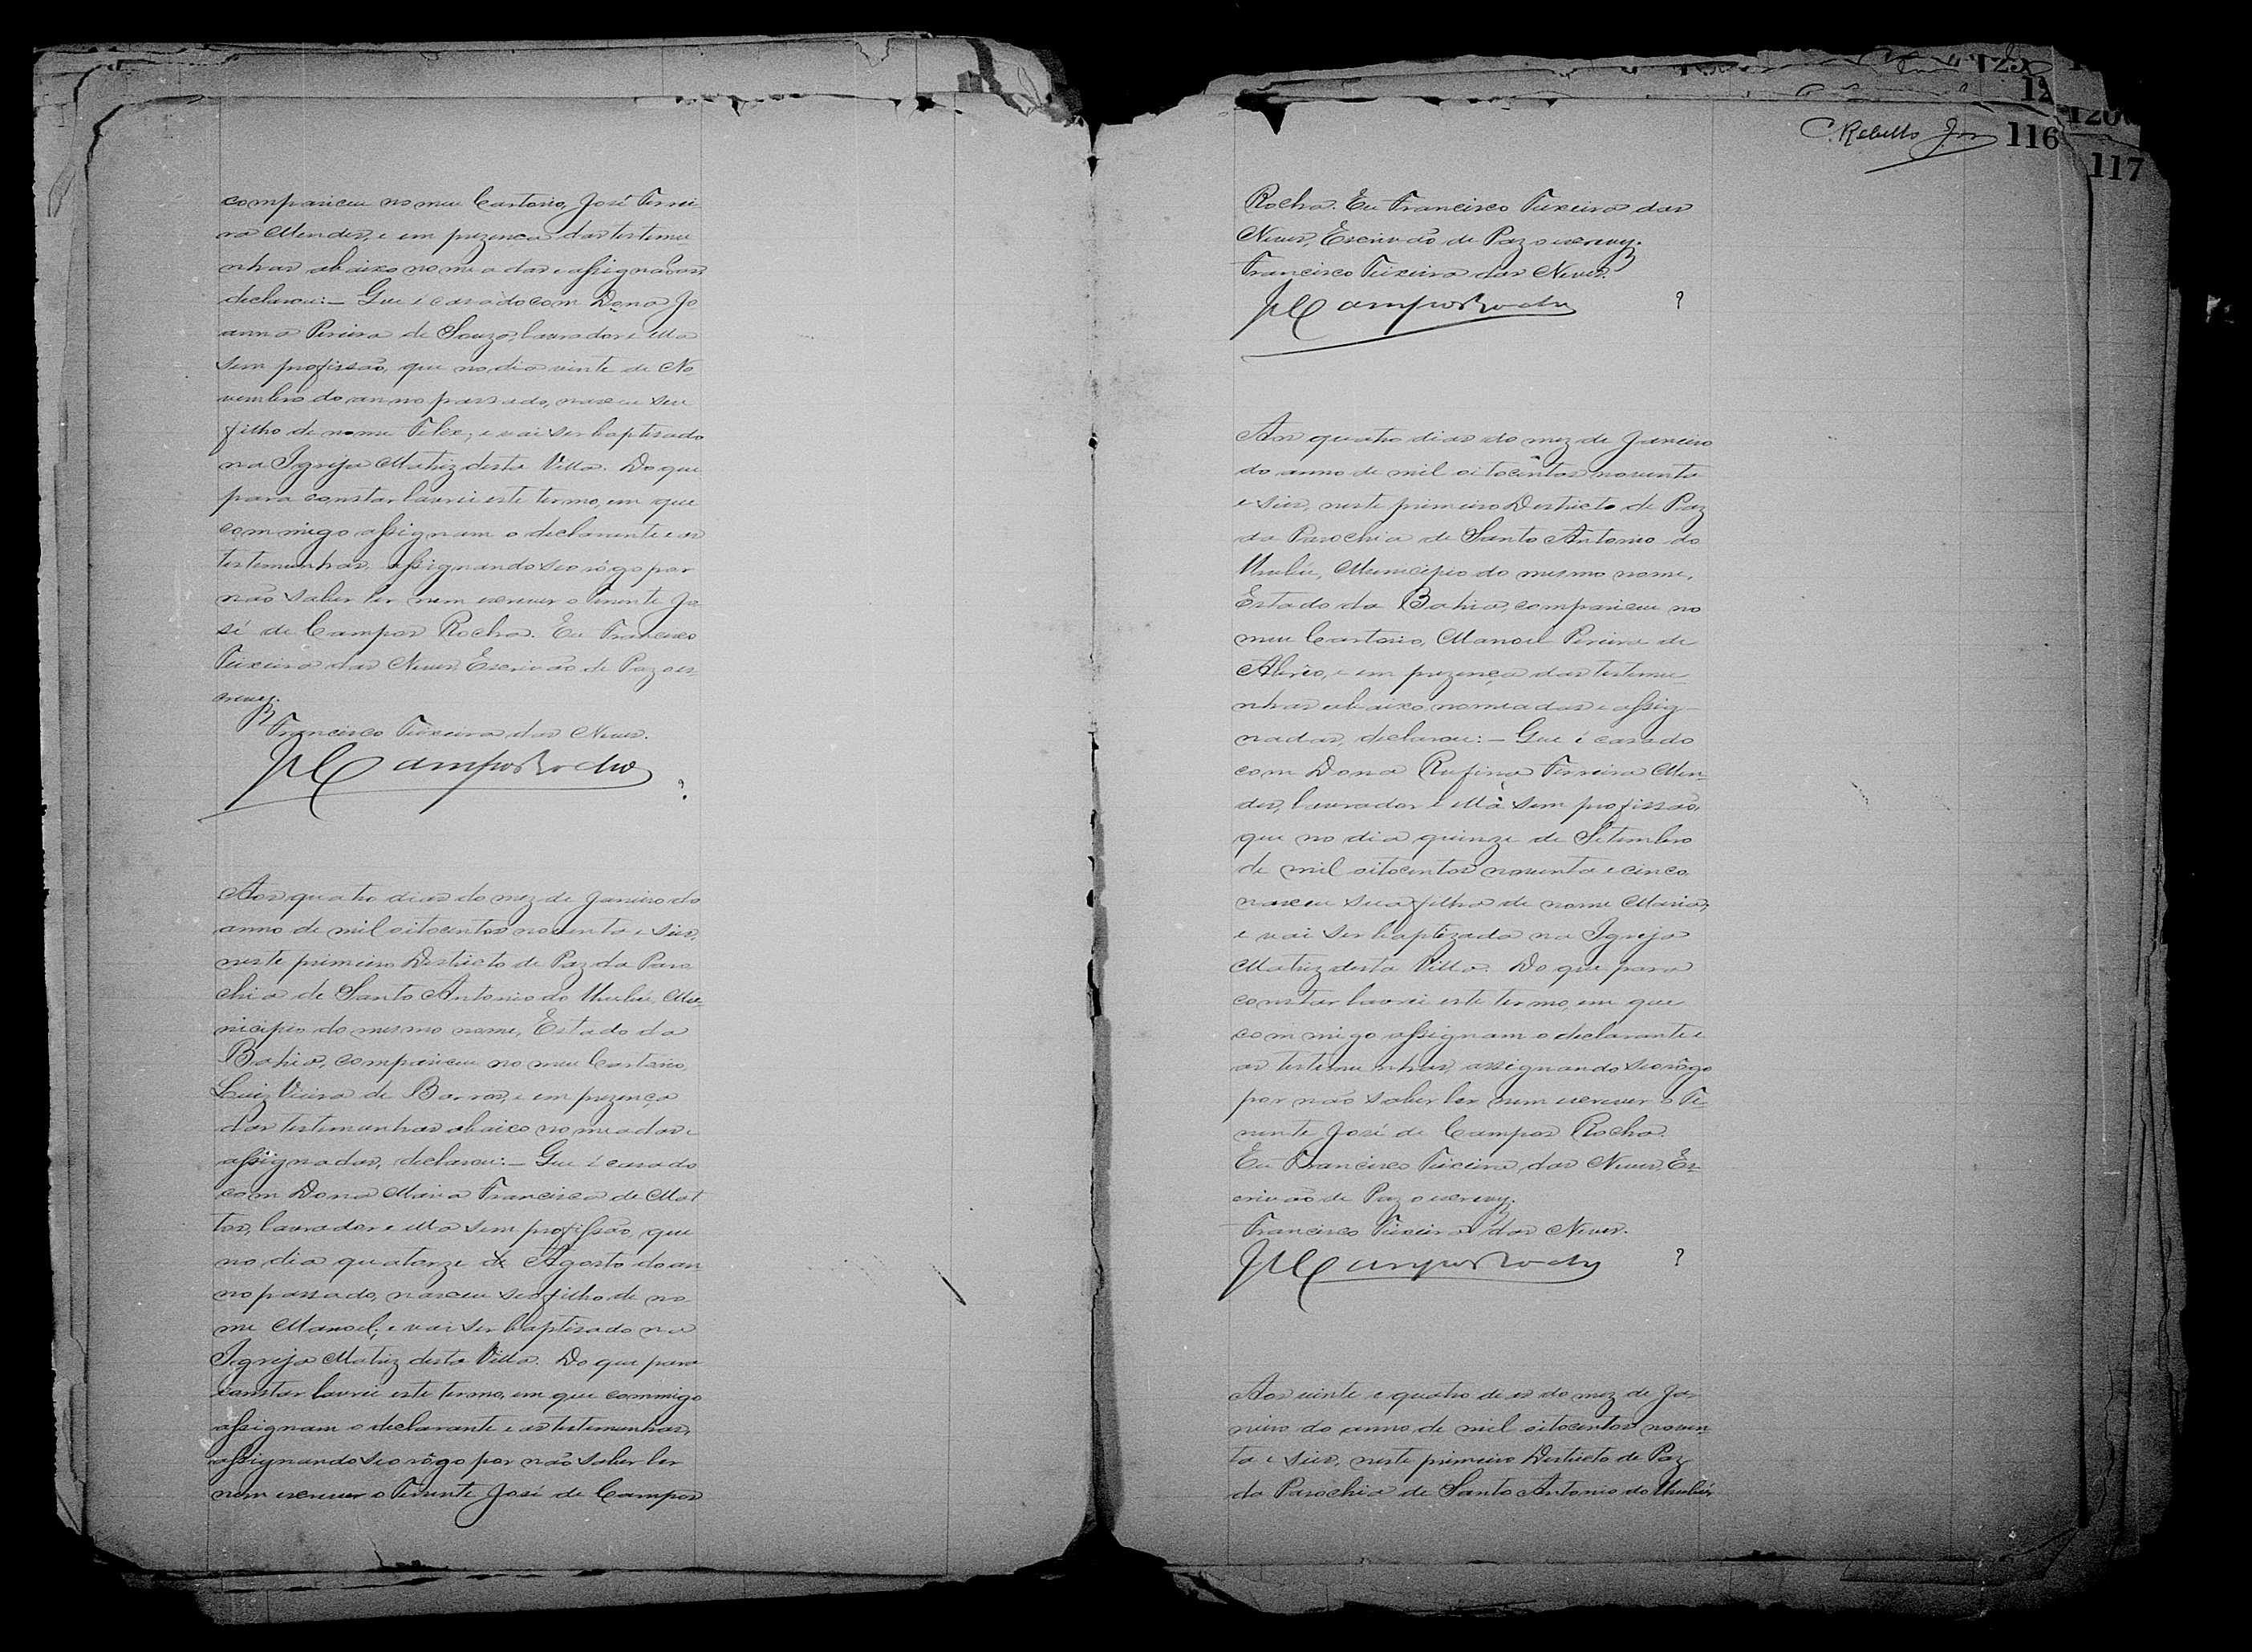 compareceu no meu Cartorio, José Ferrei-
ra Mendes, e em prezença das testemu-
nhas abaixo nomeadas e assignadas,
declarou:— Que é casado com Dona Jo
anna Pereira de Souza, lavrador e ella
sem profissão, que no dia vinte de No-
vembro do anno passado, nasceu seu
filho de nome Felix; e vai ser baptisado
na Igreja Matriz desta Villa. Do que
para constar lavrei este termo, em que
commigo assignam o declarante e as
testemunhas, assignando seo rôgo por
não saber ler nem escrever o Tenente Jo-
sé de Campos Rocha. Eu Francisco
Teixeira das Neves, Escrivão de Paz o es-
crevy.
Francisco Teixeira das Neves.
JCamposRocha
Aos quatro dias do mez de Janeiro do
anno de mil oitocentos noventa e seis,
neste primeiro Destricto de Paz da Paro
chia de Santo Antonio do Urubú, Mu-
nicipio do mesmo nome, Estado da
Bahia, compareceu no meu Cartorio,
Luiz Vieira de Barros, e em prezença
das testemunhas abaixo nomeadas e
assignadas, declarou:— Que é casado
com Dona Maria Francisca de Mat
tos, lavrador e ella sem profissão, que
no dia quatorze de Agosto do an
no passado, nasceu seo filho de no
me Manoel; e vai ser baptisado na
Igreja Matriz desta Villa. Do que para
constar lavrei este termo, em que commigo
assignam o declarante e as testemunhas,
assignando seo rôgo por não saber ler
nem escrever o Tenente José de Campos
C. Rebello Jor
116
117
Rocha. Eu Francisco Teixeira das
Neves, Escrivão de Paz o escrevy.
Francisco Teixeira das Neves.
JCamposRocha
Aos quatro dias do mez de Janeiro
do anno de mil oitocentos noventa
e seis, neste primeiro Destricto de Paz
da Parochia de Santo Antonio do
Urubú, Municipio do mesmo nome,
Estado da Bahia, compareceu no
meu Cartorio, Manoel Pereira de
e em prezença das testemu-
nhas abaixo nomeadas e assig-
nadas, declarou:— Que é casado
com Dona Rufina Ferreira Men-
des, lavrador e ella sem profissão,
que no dia quinze de Setembro
de mil oitocentos noventa e cinco
nasceu sua filha de nome Maria;
e vai ser baptizada na Igreja
Matriz desta Villa. Do que para
constar lavrei este termo, em que
commigo assignam o declarante e
as testemunhas, assignando seo rôgo
por não saber ler nem escrever o Te-
nente José de Campos Rocha.
Eu Francisco Teixeira das Neves, Es-
crivão de Paz o escrevy.
Francisco Teixeira das Neves.
JCamposRocha
Aos vinte e quatro dias do mez de Ja-
neiro do anno de mil oitocentos noven
ta e seis, neste primeiro Destricto de Paz
da Parochia de Santo Antonio do Urubú,